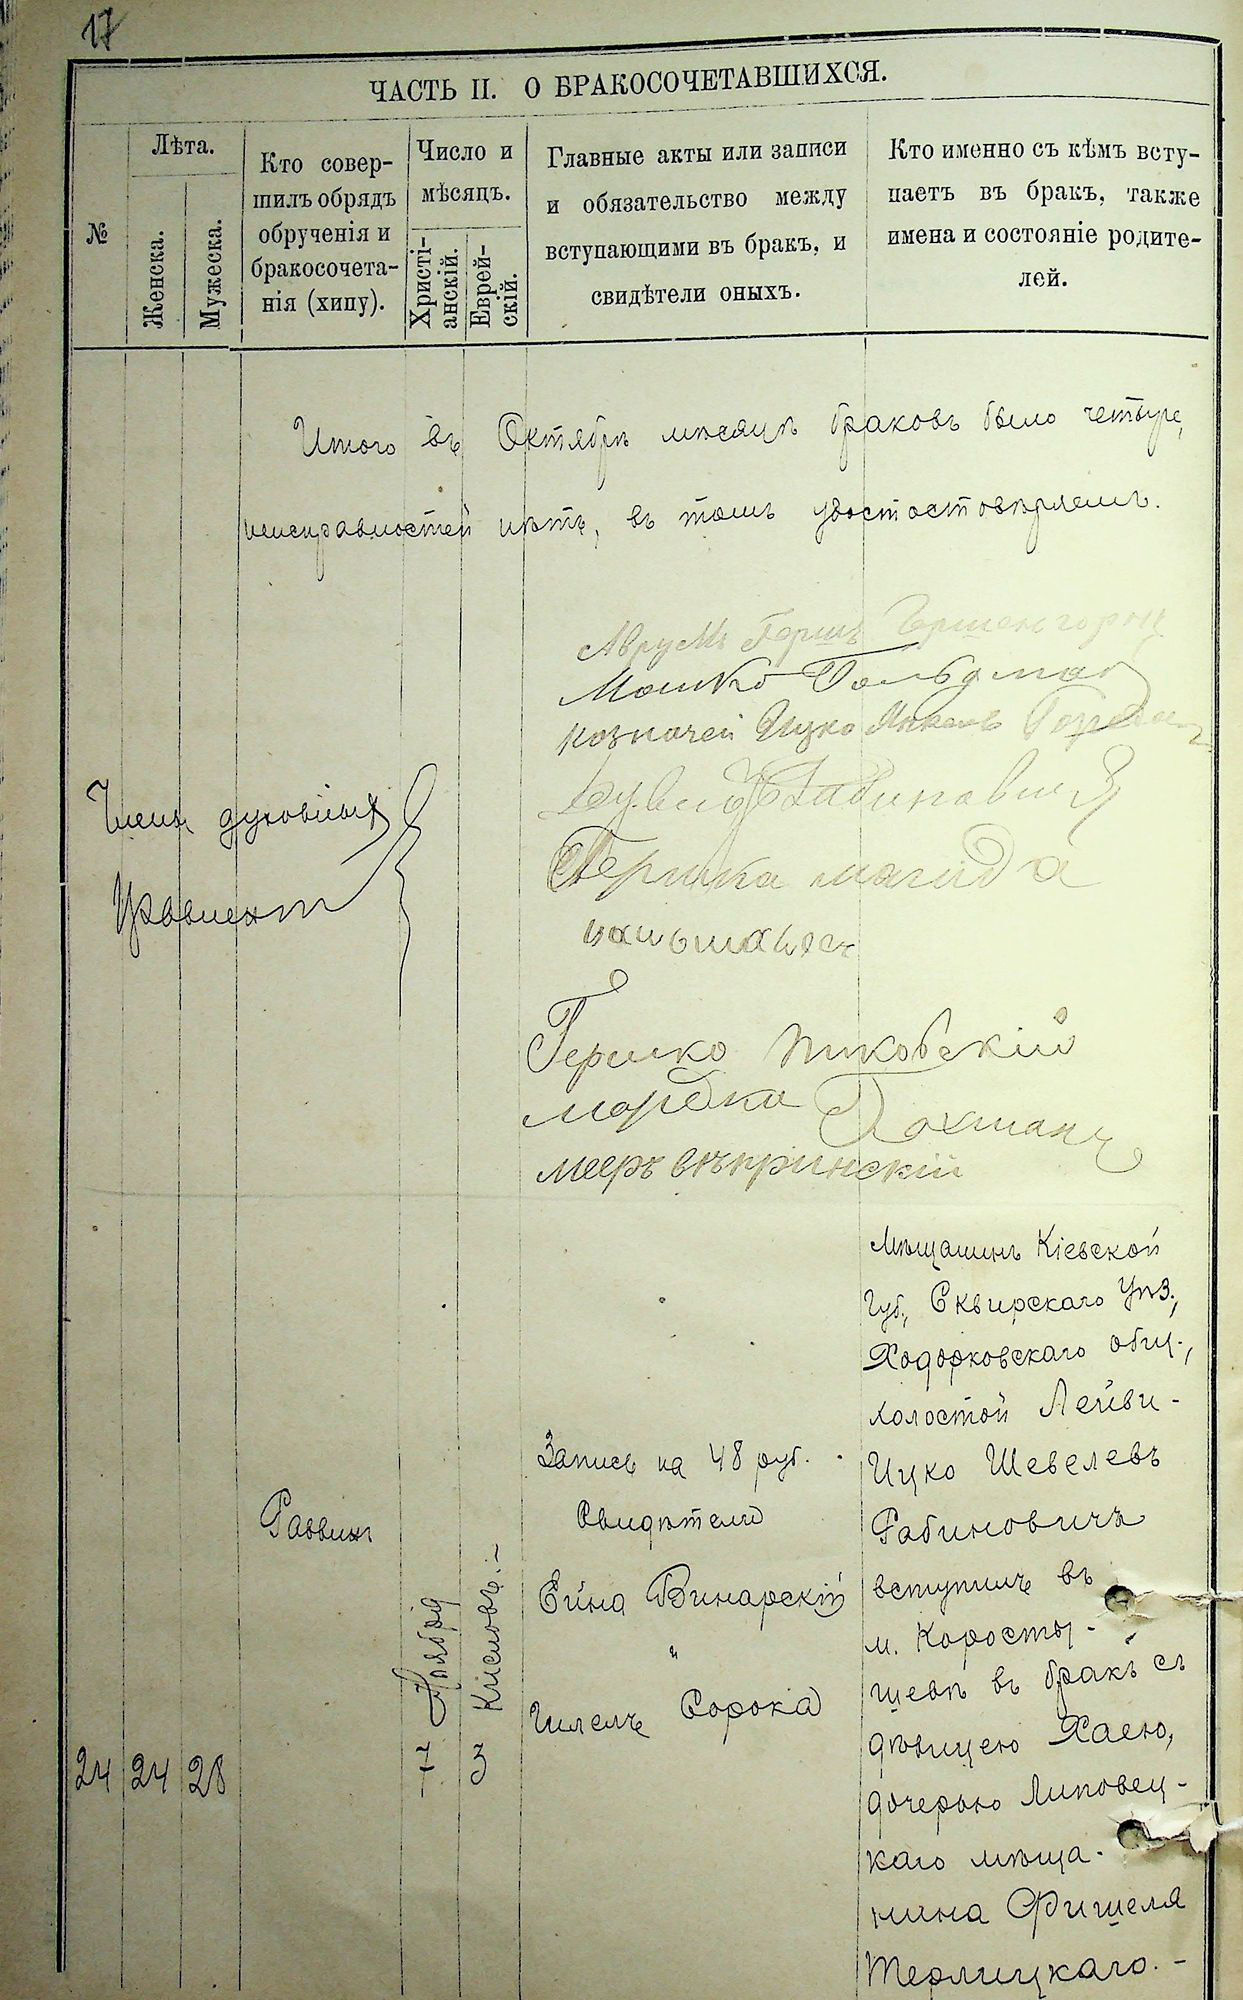 17
ЧАСТЬ II. О БРАКОСОЧЕТАВШИХСЯ.
№
Лѣта.
Женска.
Мужеска.
Кто совер-
шилъ обрядъ
обрученія и
бракосочета-
нія (хипу).
Число и
мѣсяцъ.
Христі-
анскій.
Еврей-
скій.
Главные акты или записи
и обязательство между
вступающими въ бракъ, и
свидѣтели оныхъ.
Кто именно съ кѣмъ всту-
паетъ въ бракъ, также
имена и состояніе родите-
лей.
Итого въ Октябрѣ мѣсяцѣ браковъ было четыре,
неисправностей нѣтъ, въ томъ удостостовѣряемъ.
Аврумъ Гершъ
Мошко Гольдман
козначей Ицко Янкель
Члены духовныхъ
Правленій
Гершко магид
Гершко Пиковскій
мордка Гохманъ
мееръ вѣкринскій
24
24
28
Раввинъ
7 Ноября
3 Кислевъ.-
Запись на 48 руб.
Свидѣтели
Ейна Винарскій
и
Шлема Сорока
Мѣщанинъ Кіевской
Губ., Сквирскаго Уѣз.,
Ходорковскаго общ.,
холостой Лейви-
Ицко Шевелевъ
Рабиновичъ
вступилъ въ
м. Коросты-
шевѣ въ бракъ съ
дѣвицею Хаею,
дочерью Липовец-
каго мѣща-
нина Фишеля
Терлицкаго.-